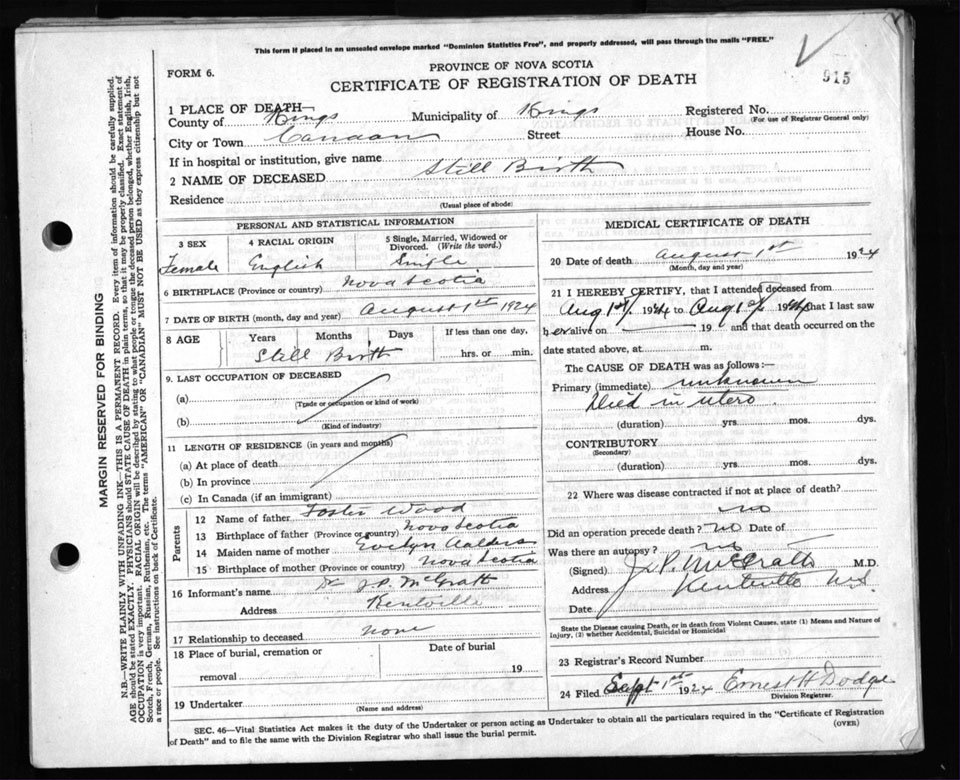 This form if placed in an unsealed envelope marked "Dominion Statistics Free", and properly addressed, will pass through the mails "FREE."
PROVINCE OF NOVA SCOTIA
FORM 6.
CERTIFICATE OF REGISTRATION OF DEATH
915
1 PLACE OF DEATH—
County of Kings Municipality of Kings Registered No.
(For use of Registrar General only)
City or Town Canaan Street House No.
If in hospital or institution, give name
2 NAME OF DECEASED Still Birth
Residence
(Usual place of abode)
PERSONAL AND STATISTICAL INFORMATION
3 SEX 4 RACIAL ORIGIN 5 Single, Married, Widowed or Divorced. (Write the word.)
Female English Single
6 BIRTHPLACE (Province or country) Nova Scotia
7 DATE OF BIRTH (month, day and year) August 1st 1924
8 AGE Years Months Days If less than one day,
Still Birth hrs. or min.
9. LAST OCCUPATION OF DECEASED
(a)
(Trade or occupation or kind of work)
(b)
(Kind of industry)
11 LENGTH OF RESIDENCE (in years and months)
(a) At place of death
(b) In province
(c) In Canada (if an immigrant)
Parents
12 Name of father Foster Wood
13 Birthplace of father (Province or country) Nova Scotia
14 Maiden name of mother Evelyn
15 Birthplace of mother (Province or country) Nova Scotia
16 Informant's name Dr J P. McGrath
Address Kentville
17 Relationship to deceased none
18 Place of burial, cremation or removal Date of burial
19
19 Undertaker
(Name and address)
MEDICAL CERTIFICATE OF DEATH
20 Date of death August 1st 1924
(Month, day and year)
21 I HEREBY CERTIFY, that I attended deceased from
Aug 1st 1924 to Aug 1st 1924 that I last saw
her alive on 19 and that death occurred on the
date stated above, at m.
The CAUSE OF DEATH was as follows:—
Primary (immediate) unknown
Died in utero
(duration) yrs. mos. dys.
CONTRIBUTORY
(Secondary)
(duration) yrs. mos. dys.
22 Where was disease contracted if not at place of death?
no
Did an operation precede death? no Date of
Was there an autopsy? no
(Signed) J. P. McGrath M.D.
Address Kentville N.S
Date
State the Disease causing Death, or in death from Violent Causes, state (1) Means and Nature of
Injury, (2) whether Accidental, Suicidal or Homicidal
23 Registrar's Record Number
24 Filed Sept 1st 1924 Ernest H Dodge
Division Registrar.
SEC. 46—Vital Statistics Act makes it the duty of the Undertaker or person acting as Undertaker to obtain all the particulars required in the "Certificate of Registration
of Death" and to file the same with the Division Registrar who shall issue the burial permit.
(OVER)
MARGIN RESERVED FOR BINDING
N.B.—WRITE PLAINLY WITH UNFADING INK—THIS IS A PERMANENT RECORD. Every item of information should be carefully supplied.
AGE should be stated EXACTLY. PHYSICIANS should STATE CAUSE OF DEATH in plain terms, so that it may be properly classified. Exact statement of
OCCUPATION is very important. RACIAL ORIGIN will be described by stating to what people or tongue the deceased person belonged, whether English, Irish,
Scotch, French, German, Russian, Ruthenian, etc. The terms "AMERICAN" OR "CANADIAN" MUST NOT BE USED as they express citizenship but not
a race or people. See instructions on back of Certificate.